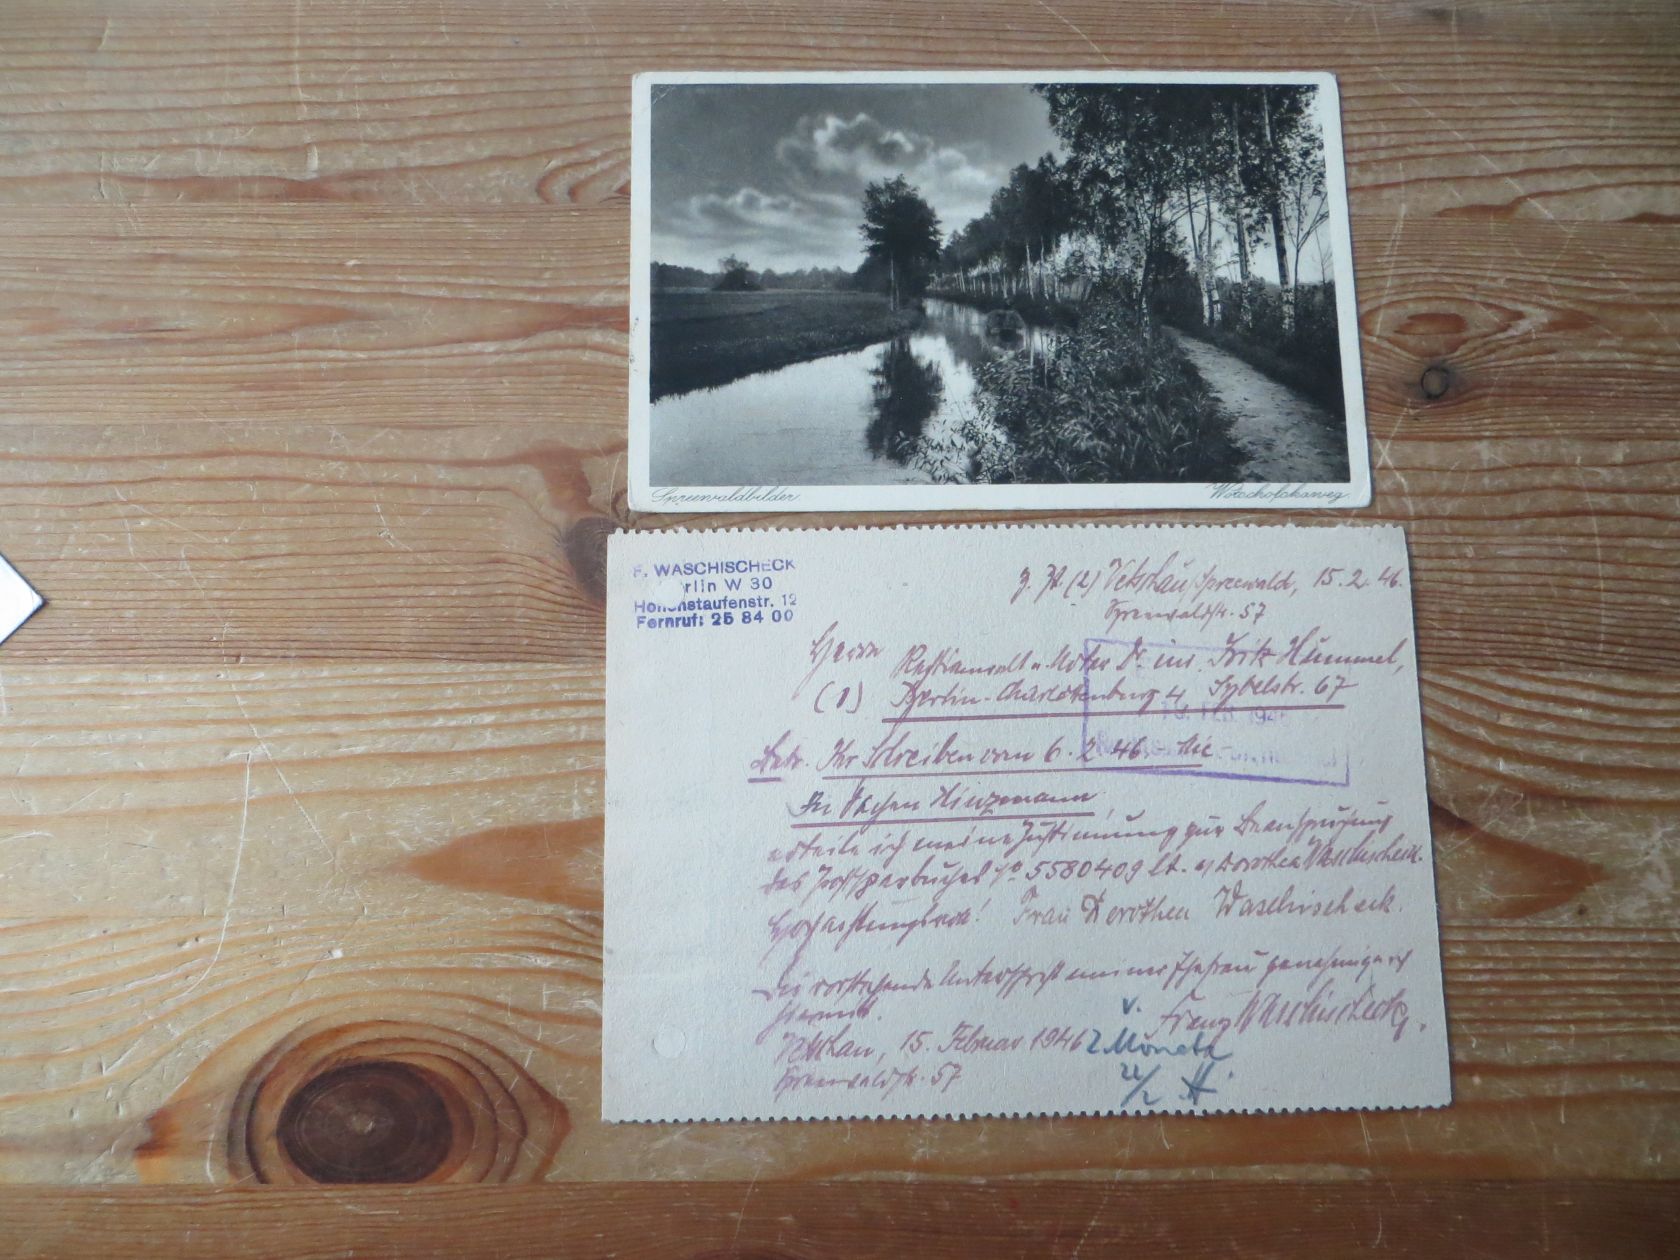 Spreewaldbilder. Wotschofskaweg.
F. WASCHISCHECK
rlin W 30
Hohenstaufenstr. 12
Fernruf: 25 84 00
z. Zt. (2) Vetschau/Spreewalde, 15.2.46.
Spreewaldstr. 57
Herrn
Rechtsanwalt u. Notar Dr. jur. Fritz Hummel,
(1) Berlin-Charlottenburg 4 Sybelstr. 67
FEB. 1946
Betr. Ihr Schreiben vom 6.2.46
In Sachen Hinzmann
erteile ich meine Zustimmung zur Beanspruchung
des Postsparbuches No 5580409 lt. a/ Dorothea Waschischeck.
Hochachtungsvoll! Frau Dorothea Waschischeck.
Die vorstehende Unterschrift meiner Ehefrau genehmige ich
hiermit.
Franz Waschischeck,
Vetschau, 15. Februar 1946
v.
2 Monate
Spreewaldstr. 57